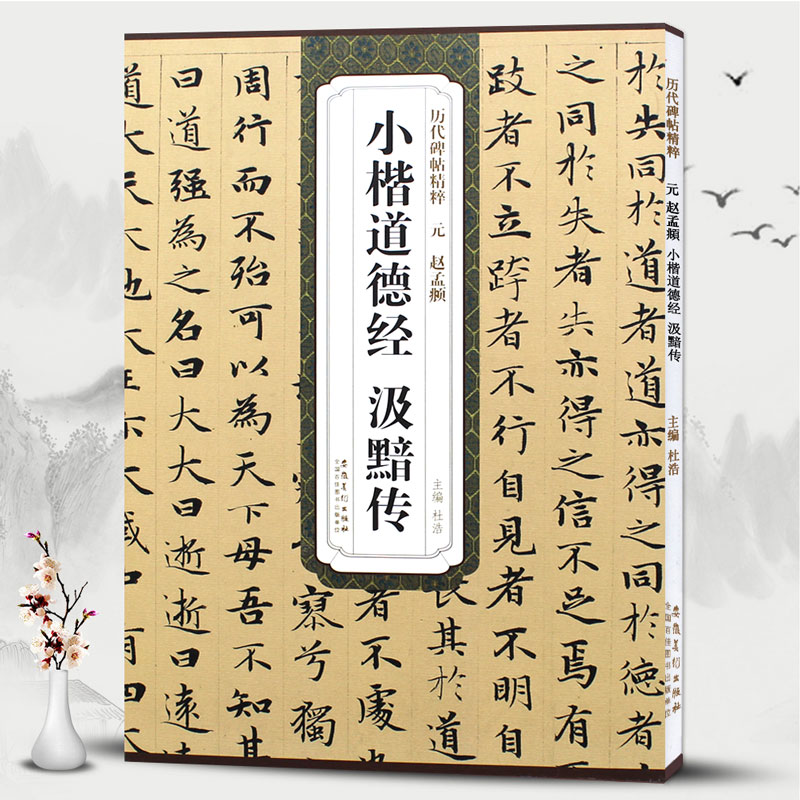 历代碑帖精粹 元 赵孟頫 小楷道德经 汲黯传 主编 杜浩
安徽美术出版社
全国百佳图书出版单位
历代碑帖精粹 元 赵孟頫
小楷道德经 汲黯传
主编 杜浩
安徽美术出版社
全国百佳图书出版单位
於失同於道者道亦得之同於德者
之同於失者失亦得之信不足焉有
跂者不立跨者不行自見者不明自
其於道
者不處也
寥兮獨
周行而不殆可以為天下母吾不知其
曰道強為之名曰大大曰逝逝曰遠遠
道大天大地大王亦大域中有四大